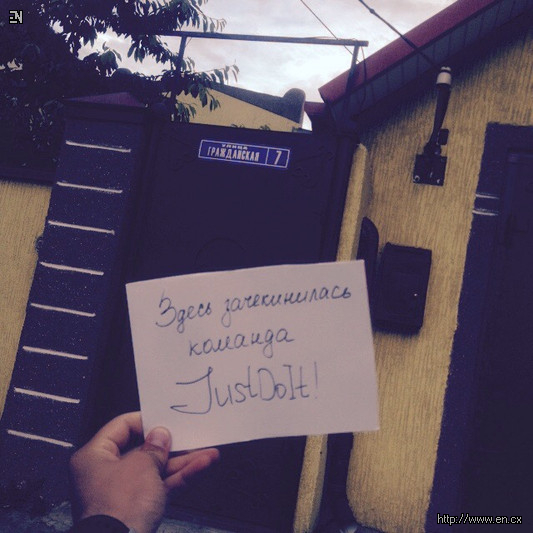 EN
УЛИЦА
ГРАЖДАНСКАЯ 7
Здесь зачекинилась
команда
JustDoIt!
http://www.en.cx